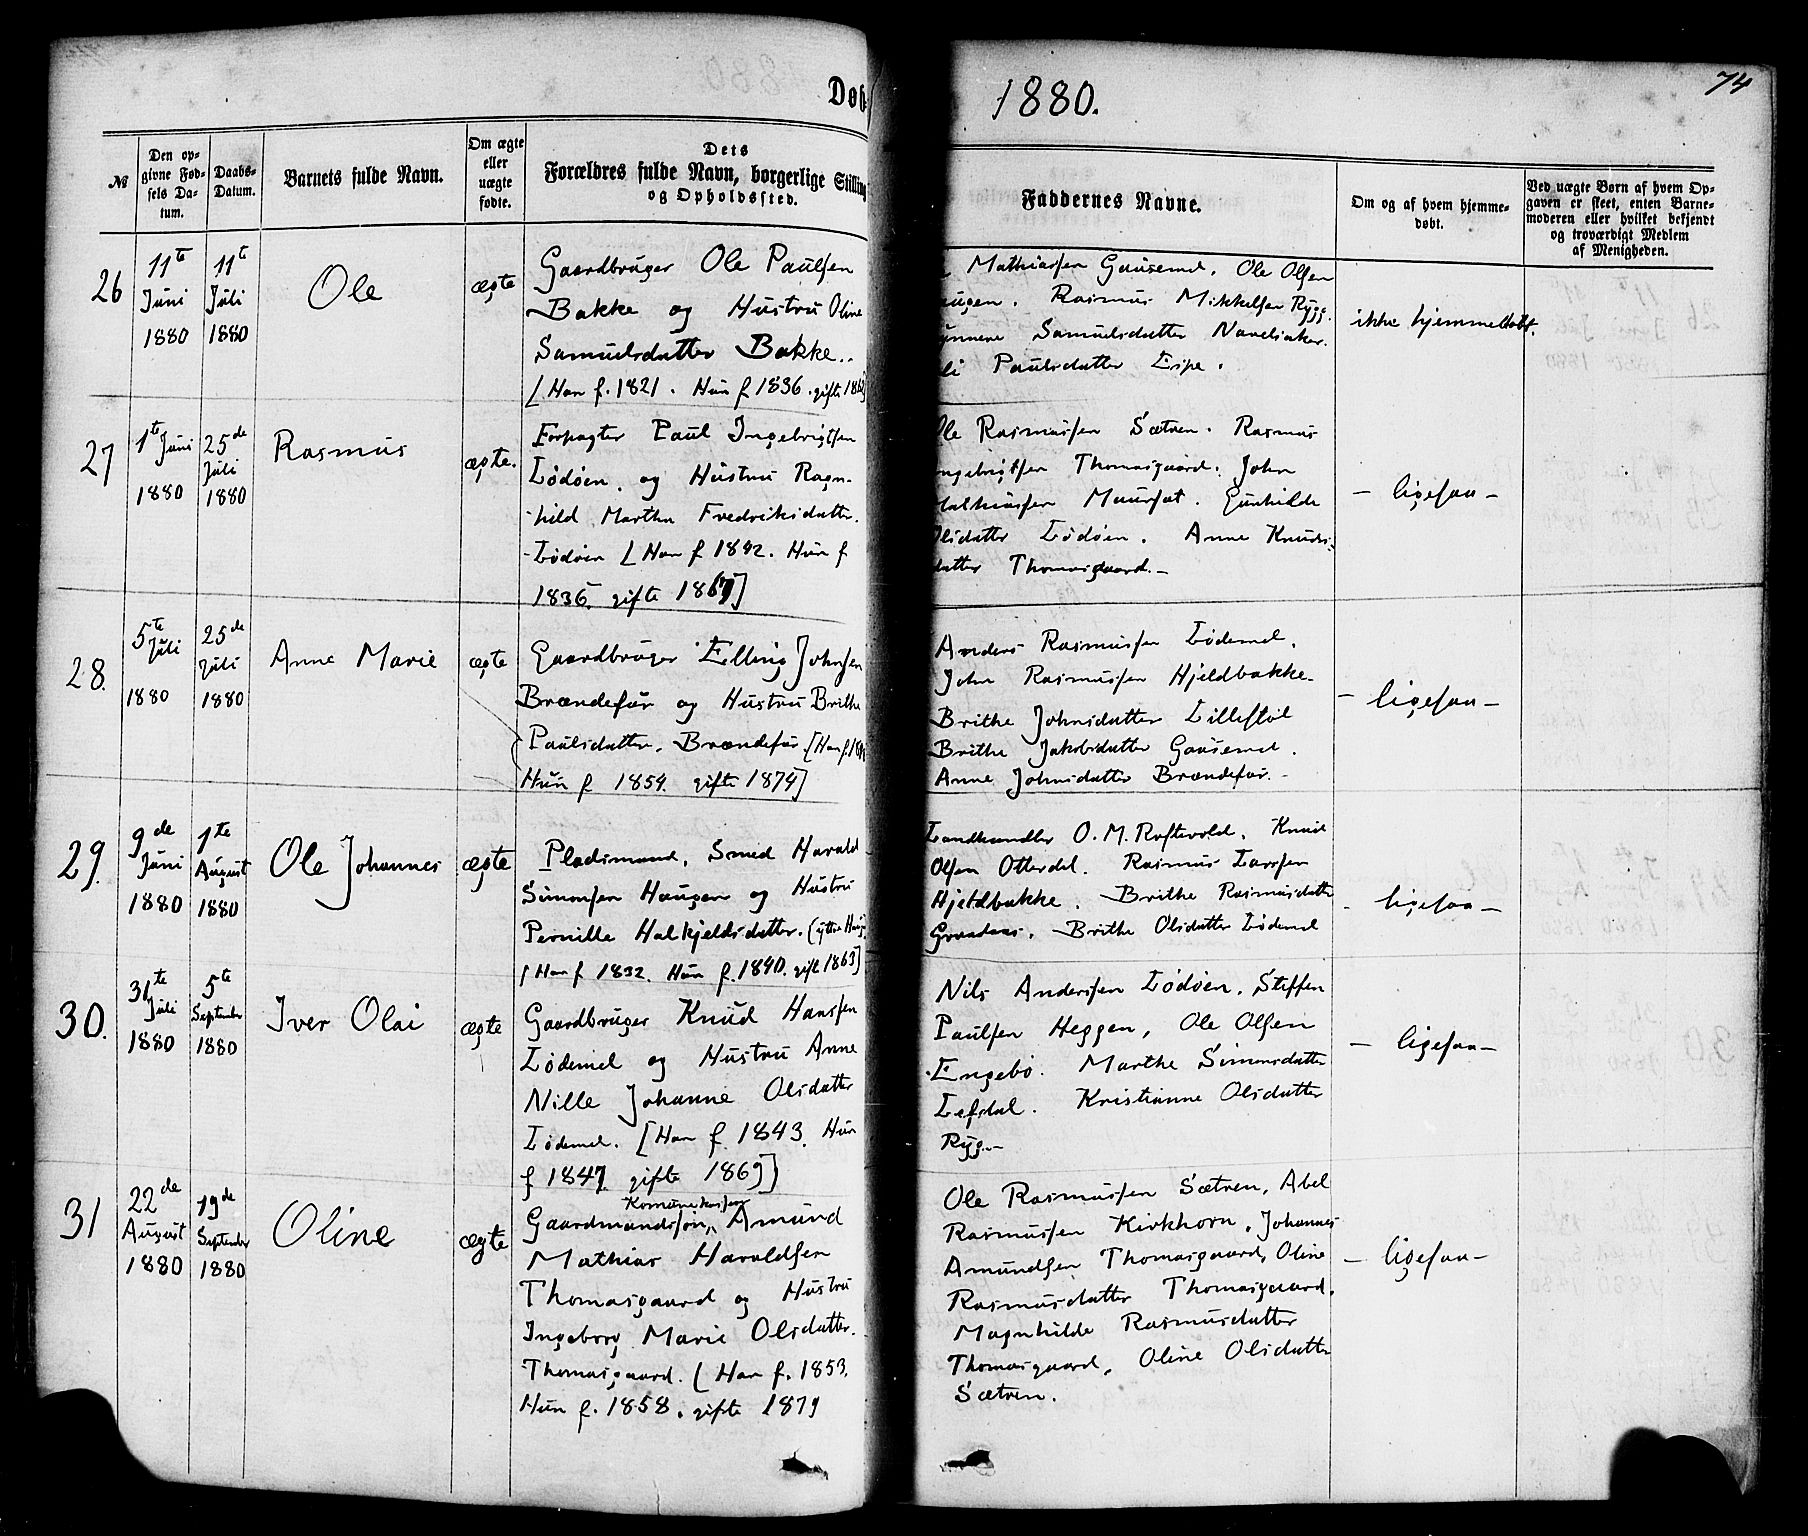 Døb
1880.
74
№
Den op-
givne Fød-
sels Da-
tum.
Daabs-
Datum.
Barnets fulde Navn.
Om ægte
eller
uægte
fødte.
Dets
Forældres fulde Navn, borgerlige Stilling
og Opholdssted.
Faddernes Navne.
Om og af hvem hjemme-
døbt.
Ved uægte Børn af hvem Op-
gaven er skeet, enten Barne-
moderen eller hvilket bekjendt
og troværdigt Medlem
af Menigheden.
26
11te
Juni
1880
11te
Juli
1880
Ole
ægte
Gaardbruger Ole Paulsen
Bakke og Hustru Oline
Samuelsdatter Bakke..
[Han f. 1821. Hun f 1836. gifte
Mathiassen Gausemel. Ole Olsen
augen. Rasmus Mikkelsen Rygg.
Samuelsdatter Navelsaker.
Paulsdatter Eipe.
ikke hjemmedøbt.
27
1te Juni
1880
25de
Juli
1880
Rasmus
ægte.
Forpagter Paul Ingebrigtsen
Lødøen, og Hustru Ragn-
hild Marthe Fredriksdatter.
Lødøen [Han f 1842. Hun f
1836. gifte 1867]
Ole Rasmussen Sætren. Rasmus
ngebrigtsen Thomasgaard. John
Mathiassen Maursæt. Gunhilde
Olsdatter Lødøen. Anne Knuds-
datter Thomasgaard.-
- ligesaa -
28.
5te
Juli
1880
25de
Juli
1880
Anne Marie
ægte
Gaardbruger Elling Johnsen
Brændefur og Hustru Brithe
Paulsdatter, Brændefur [Han f.
Hun f 1854. gifte 1874]
Anders Rasmussen Lødemel.
John Rasmussen Hjeldbakke-
Brithe Johnsdatter Lillestøl
Brithe Jakobsdatter Gausemel.
Anne Johnsdatter Brændefur.-
- ligesaa -
29.
9de
Juni
1880
1te
August
1880
Ole Johannes
ægte
Pladsmand, Smed Harald
Simonsen Haugen og Hustru
Pernille Halkjeldsdatter. (yttre
[Han f 1832. Hun f. 1840. gift 1863]
Landhandler O. M. Raftevold. Knud
Olsen Otterdal. Rasmus Larssen
Hjeldbakke. Brithe Rasmusdatter
Grodaas. Brithe Olsdatter Lødemel
- ligesaa -
30.
31te
Juli
1880
5te
September
1880
Iver Olai
ægte
Gaardbruger Knud Hansen
Lødemel og Hustru Anne
Nille Johanne Olsdatter
Lødemel. [Han f 1843. Hun
f 1847 gifte 1869]
Nils Anderssen Lødøen. Steffen
Paulsen Heggen, Ole Olsen
Engebø. Marthe Simonsdatter
Lefdal. Kristianne Olsdatter
Rygg.-
- ligesaa -
31
22de
August
1880
19de
September
1880
Oline
ægte
Gaardmandssøn, Amund
Mathias Haraldsen
Thomasgaard og Hustru
Ingeborg Marie Olsdatter.
Thomasgaard. (Han f. 1853.
Hun f. 1858. gifte 1879
Ole Rasmussen Sætren, Abel
Rasmussen Kirkhorn, Johannes
Amundsen Thomasgaard, Oline
Rasmusdatter Thomasgaard.
Magnhilde Rasmusdatter
Thomasgaard, Oline Olsdatter
Sætren.
- ligesaa -